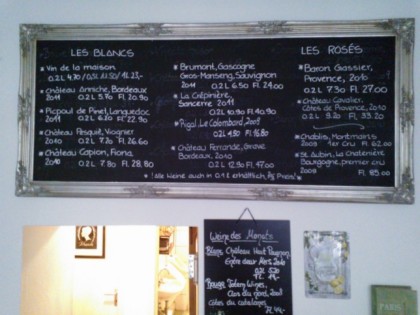 LES BLANCS
* Vin de la maison
0.2L 4.70 / 0.5L 11.50 / 1L 23,-
* Château Anniche, Bordeaux
2011 0.2L 5.70 Fl. 20.90
* Picpoul de Pinet, Languedoc
2011 0.2L 6.20 Fl. 22.90
* Château Pesquié, Viognier
2010 0.2L 7.20 Fl. 26.60
* Château Capion, Fiona
2010 0.2L 7.80 Fl. 28.80
* Brumont, Gascogne
Gros-Manseng, Sauvignon
2011 0.2L 6.50 Fl. 24.00
* La Crépinière,
Sancerre 2011
0.2L 10.90 Fl. 40.90
* Rigal, Le Colombard, 2009
0.2L 4.50 Fl. 16.80
* Château Ferrande, Grave
Bordeaux, 2010
0.2L 12.90 Fl. 47.00
* !alle Weine auch in 0.1L erhältlich, Preis!
LES ROSÉS
* Baron Gassier,
Provence, 2010
0.2L 7.30 Fl. 27.00
* Château Cavalier,
Côtes de Provence, 2010
0.2L 9.20 Fl. 33.20
* Chablis, Montmains
2009 1er Cru Fl. 62.00
* St. Aubin, La Chatenière
Bourgogne, premier cru
2009 Fl. 85.00
Weine des Monats
Blanc Château Haut Pougnan,
Entre deux Mers, 2010
0.2L
Rouge
2009
Côtes du catalanes
PARIS